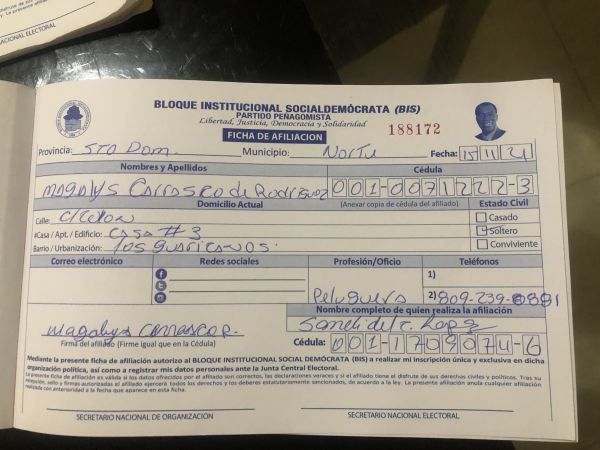 NACIONAL ELECTORAL
BLOQUE INSTITUCIONAL SOCIALDEMÓCRATA (BIS)
PARTIDO PEÑAGOMISTA
Libertad, Justicia, Democracia y Solidaridad
FICHA DE AFILIACION 188172
Provincia: STO Dom. Municipio: Norte Fecha: 15 11 21
Nombres y Apellidos Cédula
Magalys Carrasco de Rodriguez 001-0071222-3
Domicilio Actual (Anexar copia de cédula del afiliado) Estado Civil
Calle: C/ Casado
#Casa / Apt. / Edificio: Casa #3 Soltero
Barrio / Urbanización: los guaricanos. Conviviente
Correo electrónico Redes sociales Profesión/Oficio Teléfonos
1)
Peluquera 2) 809-239-
Nombre completo de quien realiza la afiliación
Magalys Carrasco R.
Firma del afiliado (Firme igual que en la Cédula) Cédula: 001-1709074-6
Mediante la presente ficha de afiliación autorizo al BLOQUE INSTITUCIONAL SOCIAL DEMÓCRATA (BIS) a realizar mi inscripción única y exclusiva en dicha
organización política, así como a registrar mis datos personales ante la Junta Central Electoral.
La presente ficha de afiliación es válida si los datos ofrecidos por el afiliado son correctos, las declaraciones veraces y si el afiliado tiene el disfrute de sus derechos civiles y políticos. Tras su
recepción, sello y firmas autorizadas el afiliado ejercerá todos los derechos y los deberes estatutariamente sancionados, de acuerdo a la ley. La presente afiliación anula cualquier afiliación
realizada con anterioridad a la fecha que aparece en esta ficha.
SECRETARIO NACIONAL DE ORGANIZACIÓN SECRETARIO NACIONAL ELECTORAL